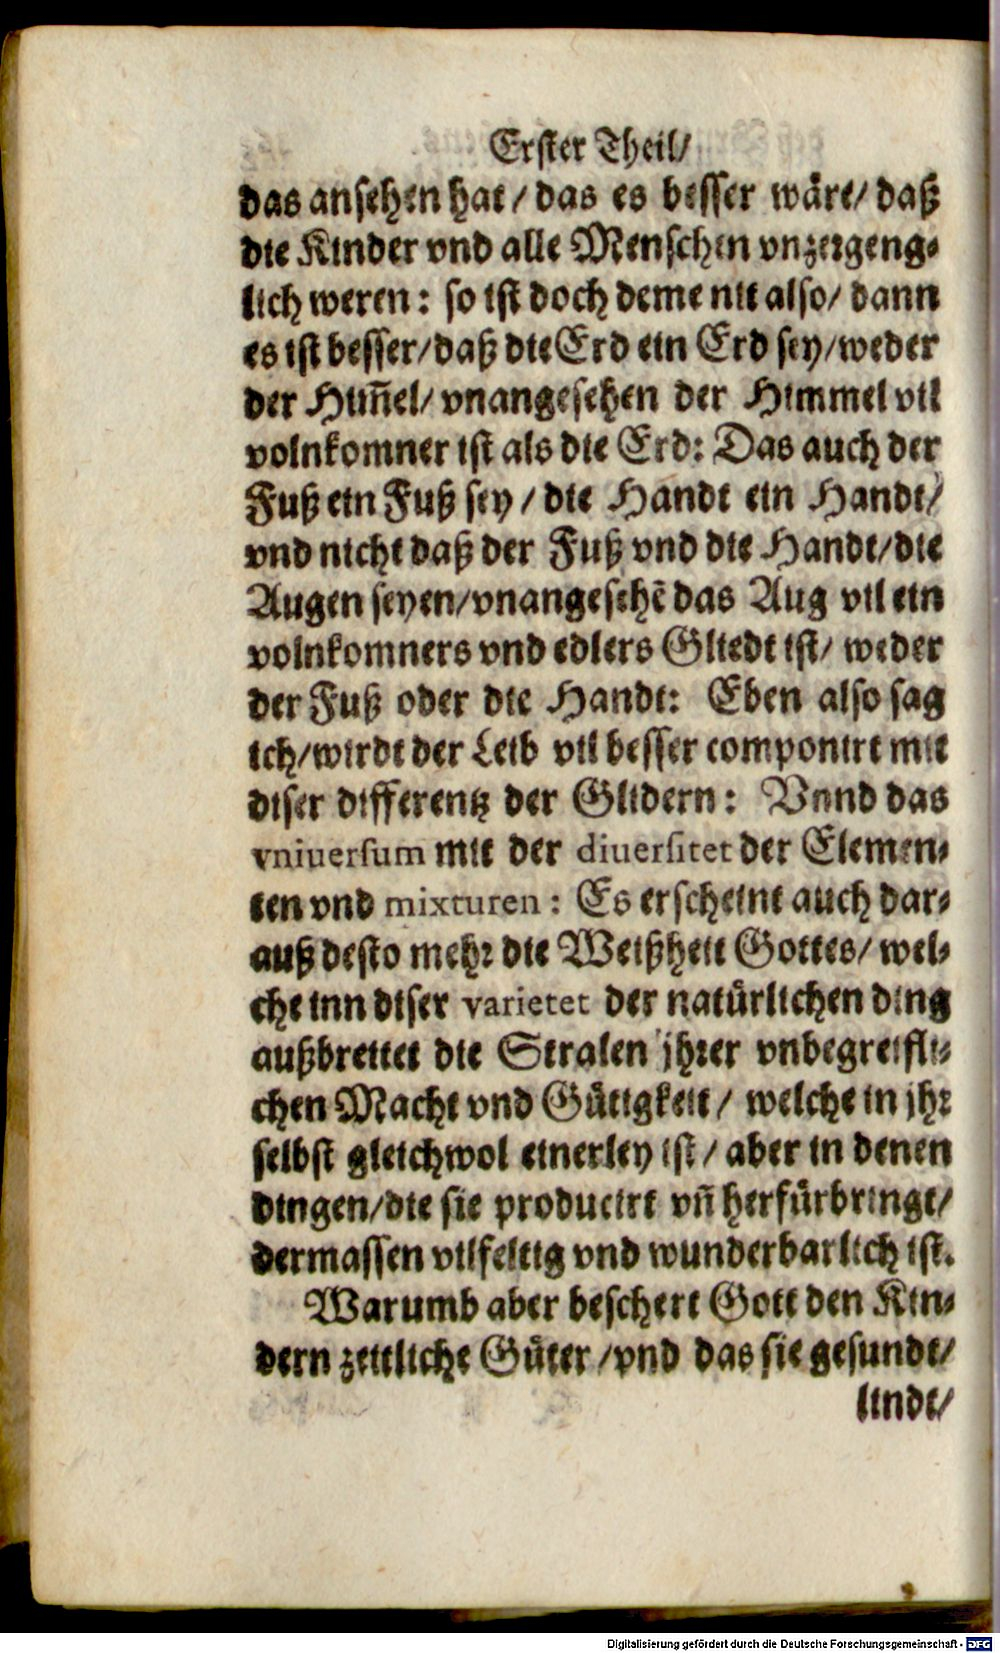 Erster Theil/
das ansehen hat / das es besser wäre/ daß
die Kinder vnd alle Menschen vnzergeng-
lich weren: so ist doch deme nit also/ dann
es ist besser/daß die Erd ein Erd sey/weder
der Him̃el/ vnangesehen der Himmel vil
volnkomner ist als die Erd: Das auch der
Fuß ein Fuß sey / die Handt ein Handt/
vnd nicht daß der Fuß vnd die Handt/die
Augen seyen/vnangesehẽ das Aug vil ein
volnkomners vnd edlers Gliedt ist/ weder
der Fuß oder die Handt: Eben also sag
ich/wirdt der Leib vil besser componirt mit
diser differentz der Glidern: Vnnd das
vniuersum mit der diuersitet der Elemen-
ten vnd mixturen: Es erscheint auch dar-
auß desto mehr die Weißheit Gottes/ wel-
che inn diser varietet der natürlichen ding
außbreitet die Stralen jhrer vnbegreifli-
chen Macht vnd Gütigkeit / welche in jhr
selbst gleichwol einerley ist / aber in denen
dingen/die sie producirt vñ herfürbringt/
dermassen vilfeltig vnd wunderbarlich ist.
Warumb aber beschert Gott den Kin-
dern zeitliche Güter /vnd das sie gesundt/
lindt/
Digitalisierung gefördert durch die Deutsche Forschungsgemeinschaft - DFG